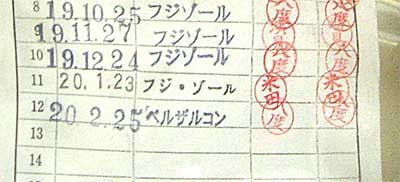 8 19.10.25 フジゾール
9 19.11.27 フジゾール
10 19.12.24 フジゾール
11 20.1.23 フジ・ゾール 米田 米田
12 20 2.25 ベルザルコン
13
14